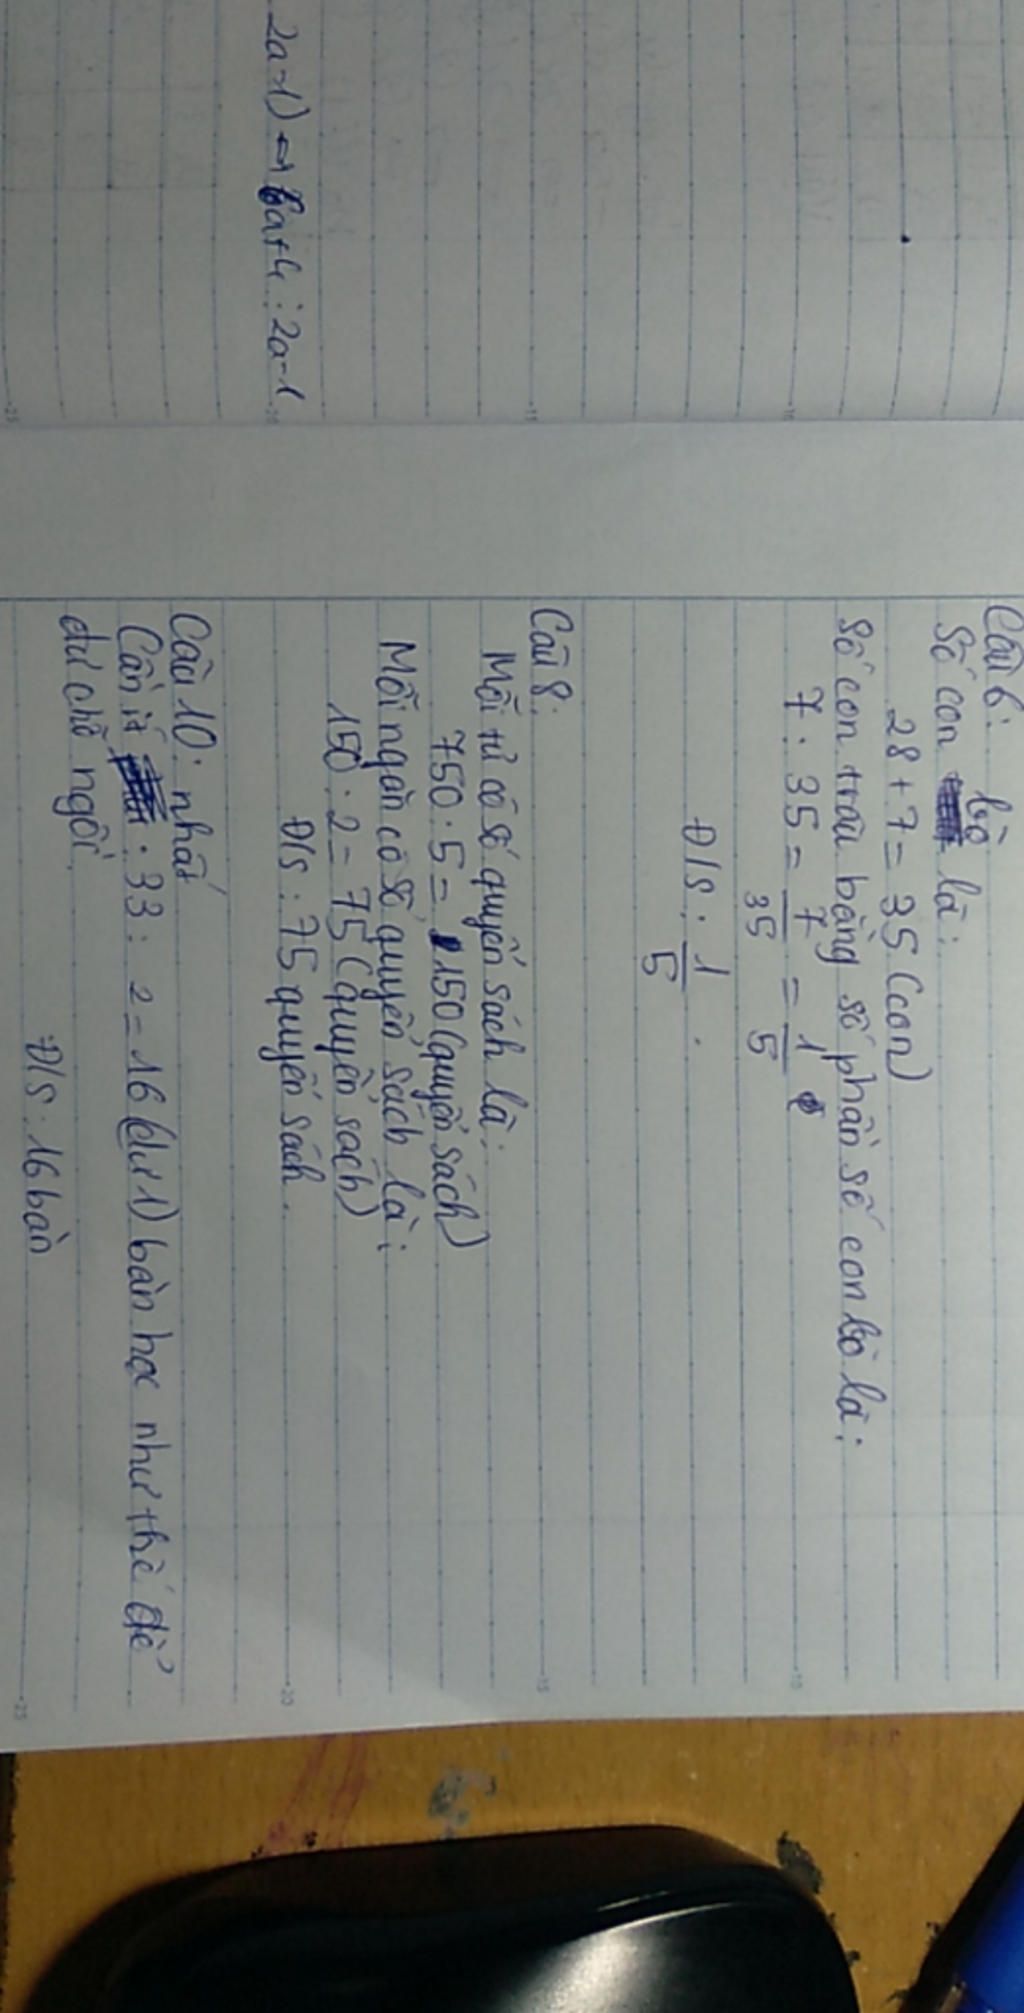 2a-1) ⇔ 6a+4 : 2a-1
Câu 6:
bò
Số con là:
28 + 7 = 35 (con)
Số con trâu bằng số phần số con bò là:
7 : 35 = 7/35 = 1/5
Đ/S: 1/5.
Câu 8:
Mỗi tủ có số quyển sách là:
750 : 5 = 150 (quyển sách)
Mỗi ngăn có số quyển sách là:
150 : 2 = 75 (quyển sách)
Đ/S: 75 quyển sách.
Câu 10: nhất
Cần ít : 33 : 2 = 16 (dư 1) bàn học như thế để
dư chỗ ngồi.
Đ/S: 16 bàn